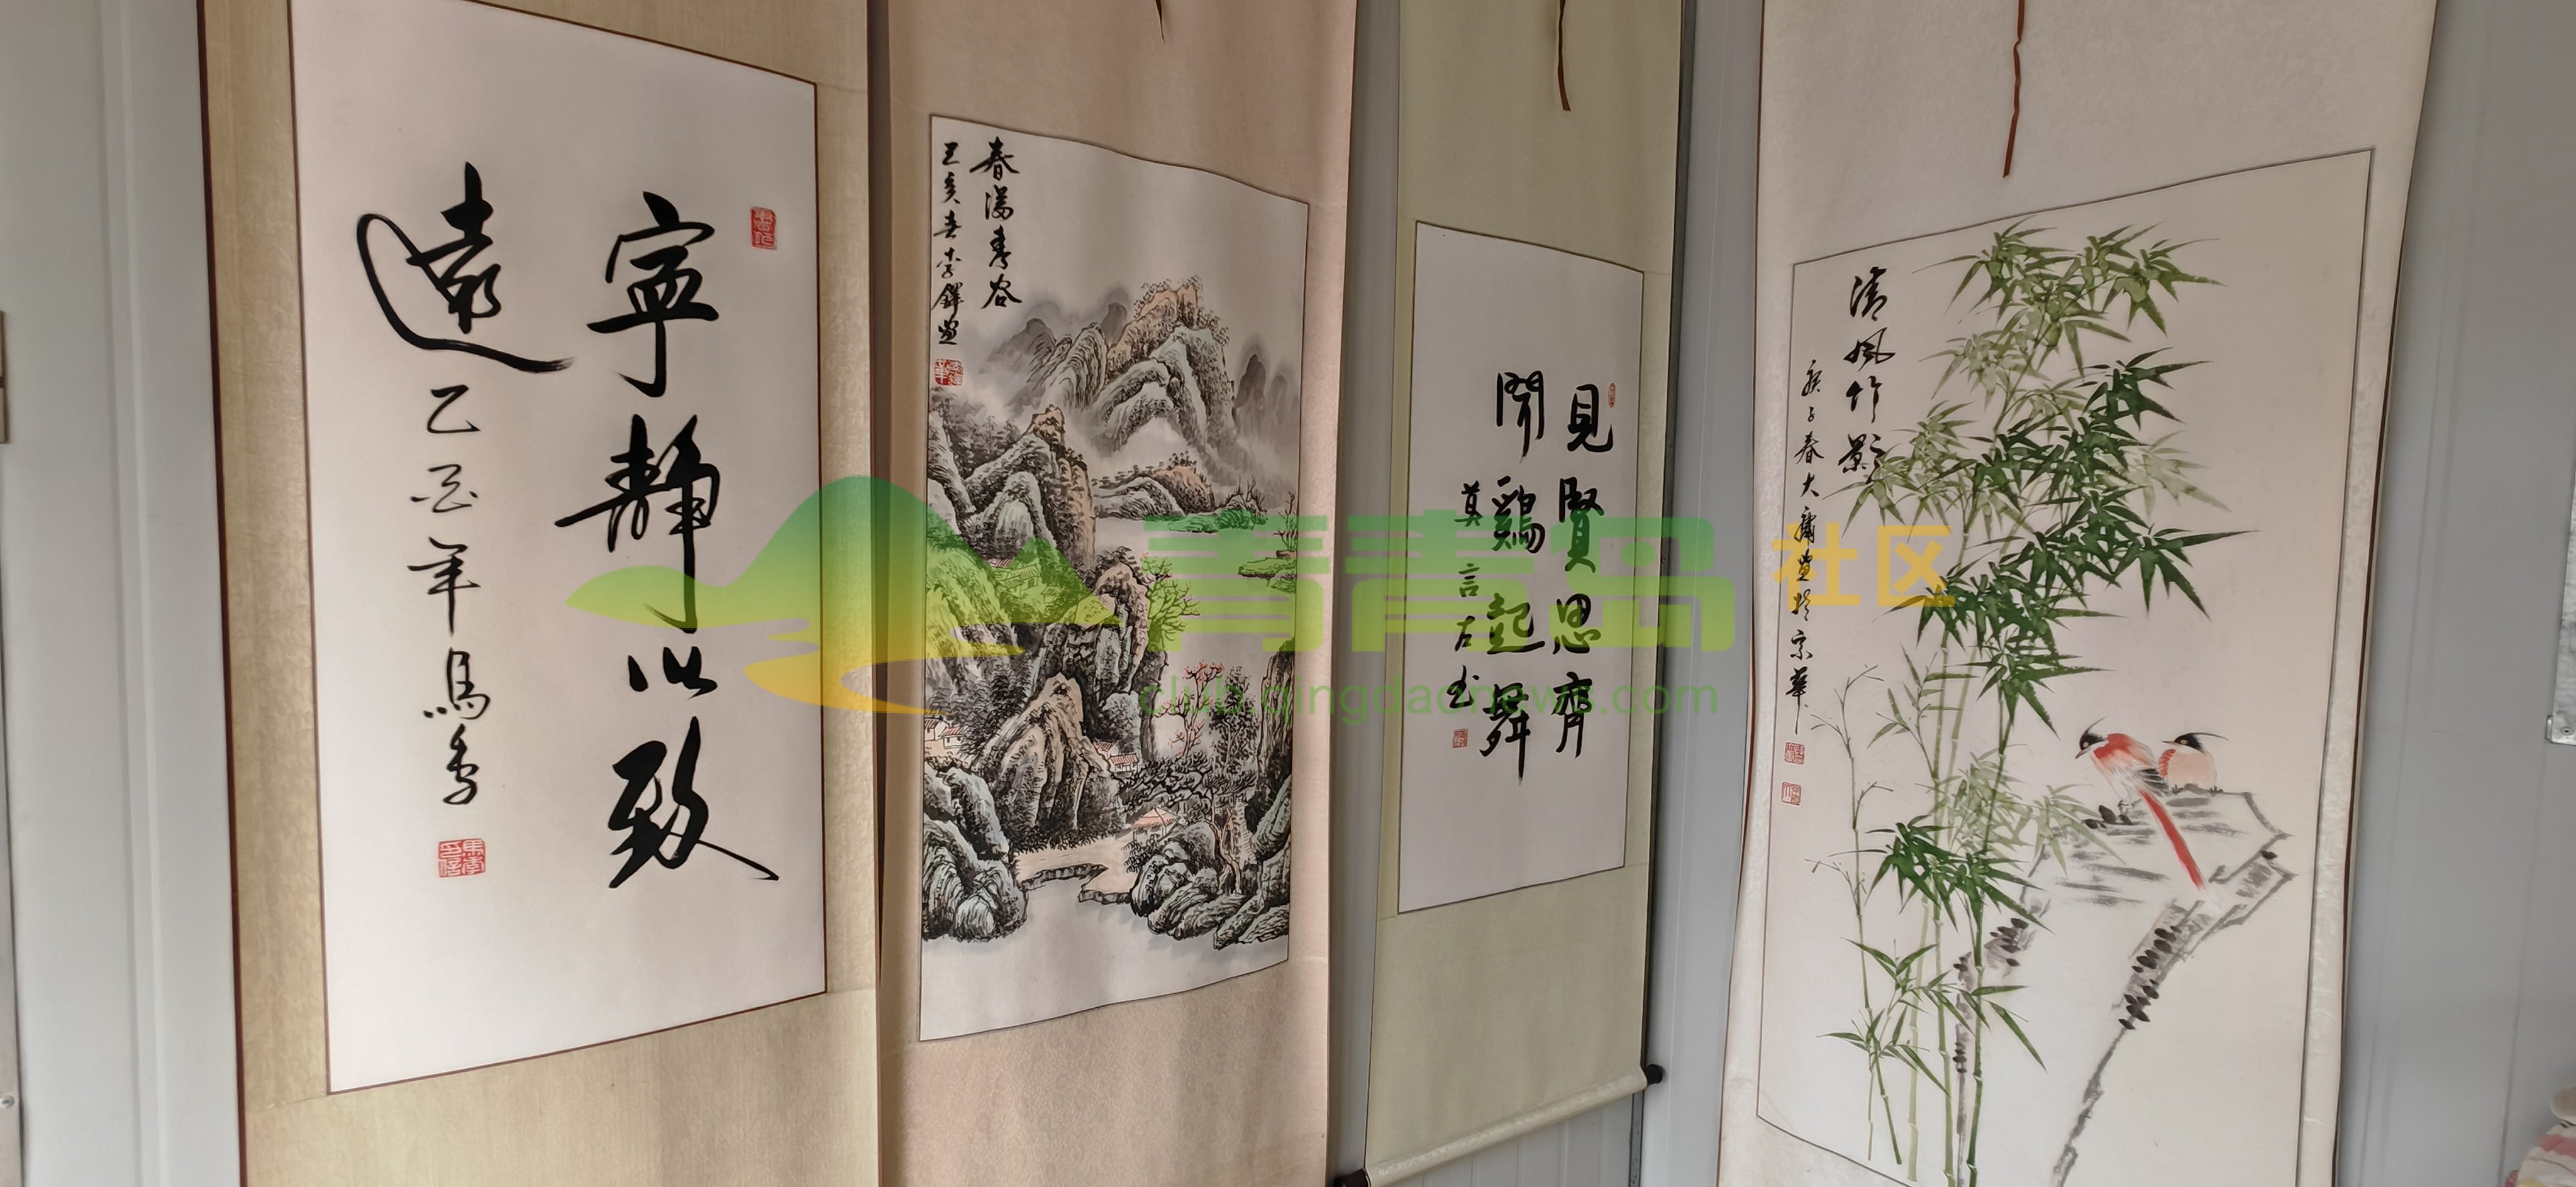 寧靜以致
遠
乙酉年馬季
春滿秀谷
己亥春李鐸畫
見賢思齊
聞鷄起舞
莫言左书
清風竹影
庚子春大庸畫於京華
青青岛社区
club.qingdaonews.com